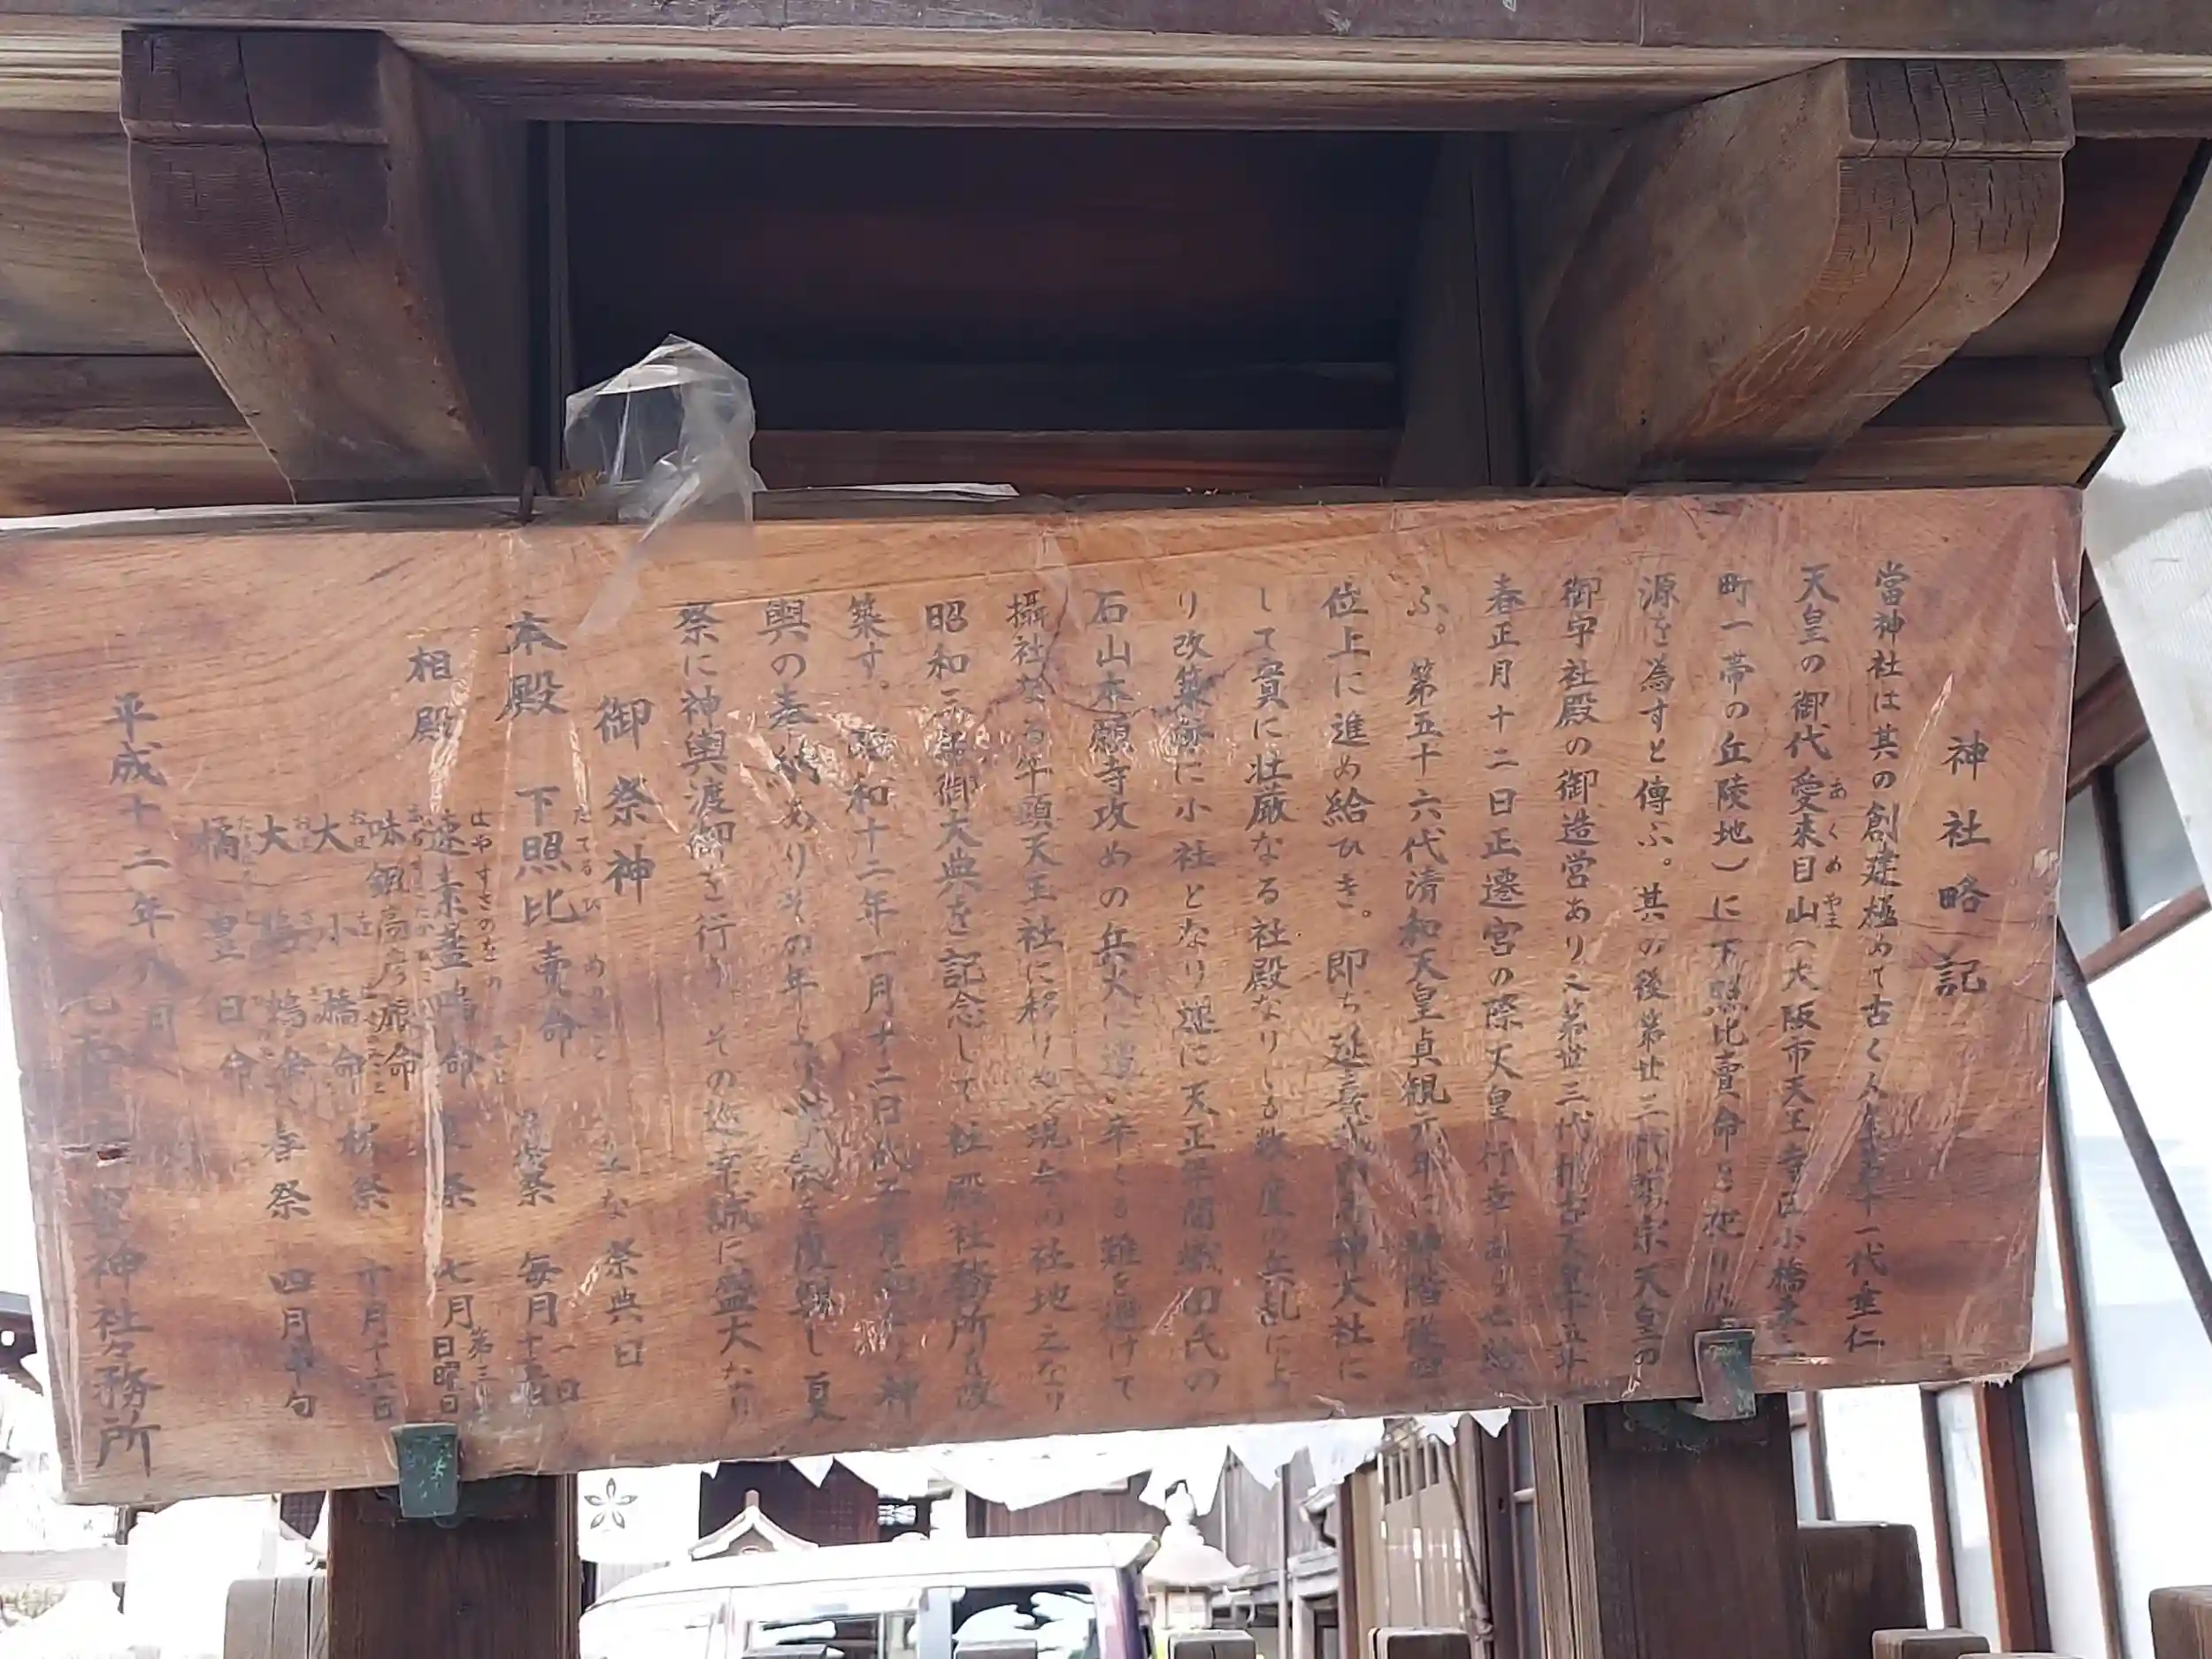 神社略記
當神社は其の創建極めて古く人皇第十一代垂仁
天皇の御代愛来目山（大阪市天王寺区小橋東之
あくめやま
町一帯の丘陵地）に下照比賣命を祀り
源を為すと傳ふ。其の後第廿三代顕宗天皇の
御宇社殿の御造営あり又第世三代推古天皇十五年
春正月十二日正遷宮の際天皇行幸あり
ふ。第五十六代清和天皇貞観元年に神階従四
位上に進め給ひき。即ち延喜式内名神大社に
して實に壮厳なる社殿なりしも数度の兵乱によ
り改築毎に小社となり遂に天正年間織田氏の
石山本願寺攻めの兵火に遭い辛くも難を避けて
攝社なる牛頭天王社に移りぬ現今の社地之なり
昭和三年御大典を記念して社殿社務所を改
築す。昭和十二年一月十二日氏子有志より神
輿の奉納ありその年より渡御を復興し夏
祭に神輿渡御を行う。その巡幸誠に盛大なり
御祭神
主な祭典日
本殿 下照比賣命
したてるひめのみこと
月次祭 毎月 一日 十五日
相殿
速素盞嗚命
はやすさのをの
夏祭 七月 第三 日曜日
味鉏高彦根命
大小橋命
秋祭 十月十六日
大鷦鷯命
春祭 四月中旬
橘豊日命
平成十二年八月
比売許曽神社々務所